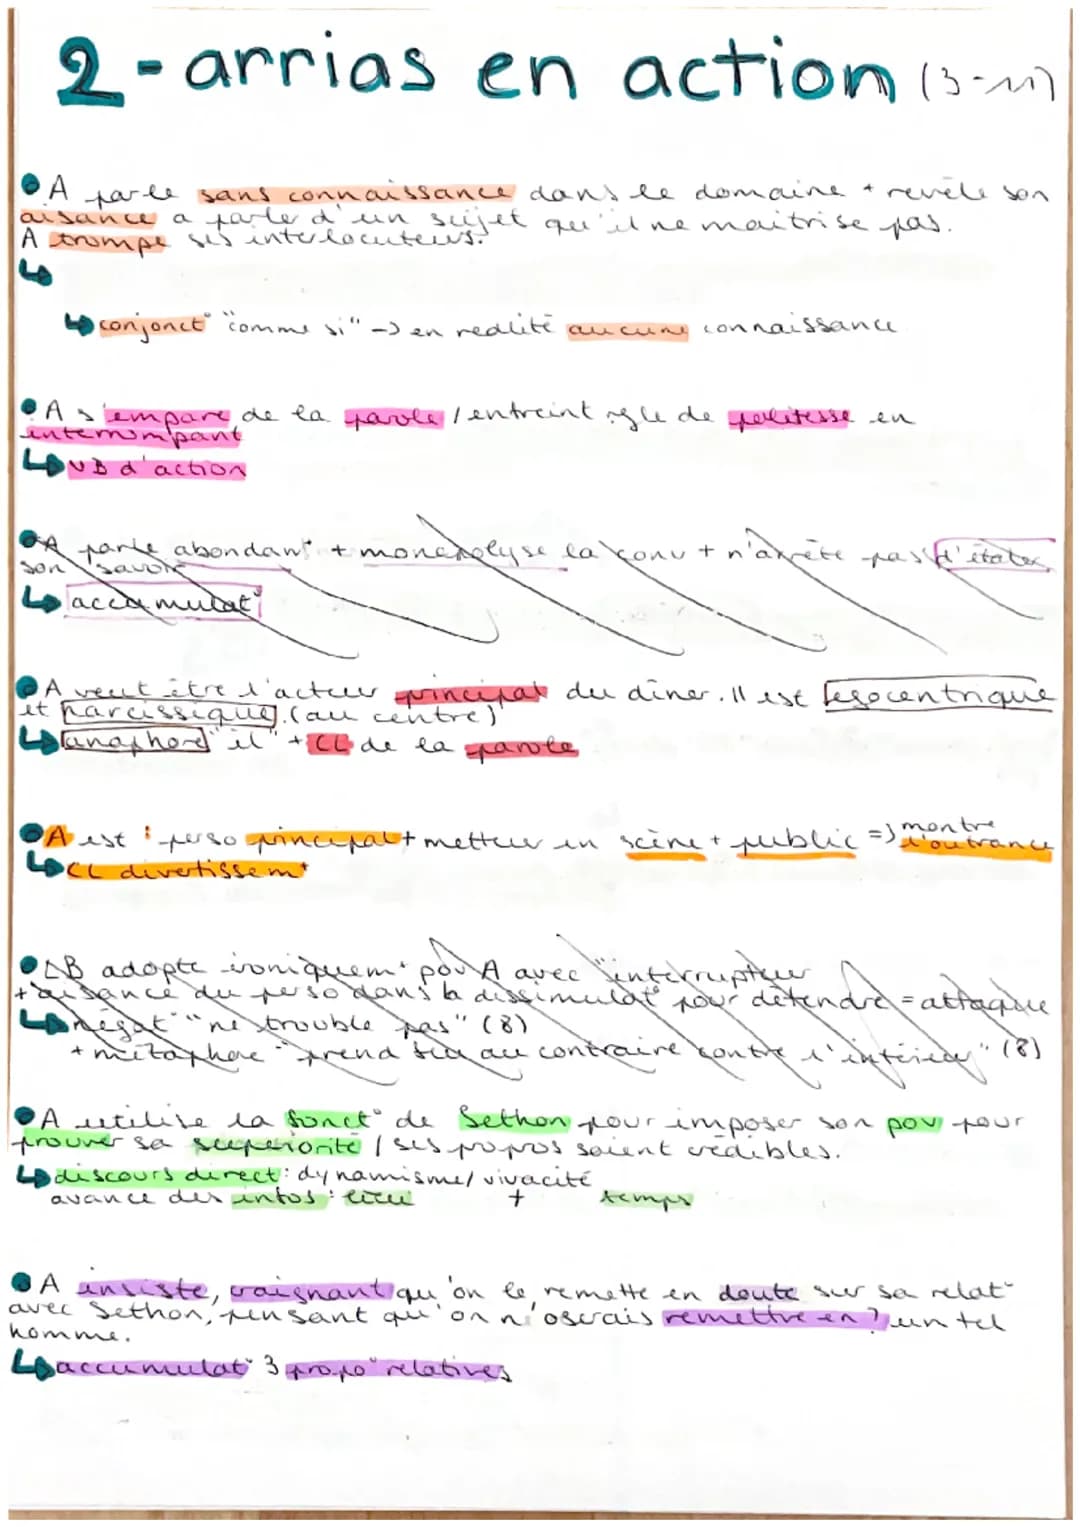 2 - arrias en action (3-11)
• A parle sans connaissance dans le domaine + revèle son
aisance a parler d'un sujet qu'il ne maitrise pas.
A trompe ses interlocuteurs.
↳
↳ conjonct° "comme si" -> en réalité aucune connaissance
• A s'empare de la parole / entreint rgle de politesse en
interrompant
↳ VB d'action
• A parle abondam^t + monopolyse la conv + n'arrête pas d'étaler
son "savoir"
↳ accumulat°
• A veut être l'acteur principal du dîner. Il est égocentrique
et narcissique. (au centre)
↳ anaphore "il" + CL de la parole
• A est : perso principal + metteur en scène + public => montre
l'outrance
↳ CL divertissem^t
• LB adopte ironiquem^t pov A avec "interrupteur
+ aisance du perso dans la dissimulat° pour détendre = attaque
↳ négat° "ne trouble pas" (8)
+ métaphore "prend feu au contraire contre l'interieur" (8)
• A utilise la fonct° de Sethon pour imposer son pov pour
prouver sa supériorité / ses propos soient crédibles.
↳ discours direct : dynamisme / vivacité
avance des infos : lieu + temps
• A insiste, craignant qu'on le remette en doute sur sa relat°
avec Sethon, pensant qu'on n'oserais remettre en ? un tel
homme.
↳ accumulat° 3 propo° relatives